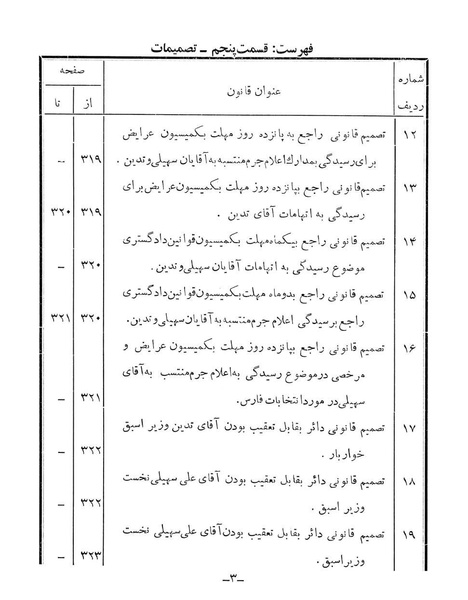 فهرست: قسمت پنجم ـ تصمیمات
شماره ردیف عنوان قانون صفحه
از تا
۱۲ تصمیم قانونی راجع به پانزده روز مهلت بکمیسیون عرایض
برای رسیدگی بمدارک اعلام جرم منتسبه به آقایان سهیلی و تدین . ۳۱۹ --
۱۳ تصمیم قانونی راجع بپانزده روز مهلت بکمیسیون عرایض برای
رسیدگی به اتهامات آقای تدین . ۳۱۹ ۳۲۰
۱۴ تصمیم قانونی راجع بیکماه مهلت بکمیسیون قوانین دادگستری
موضوع رسیدگی به اتهامات آقایان سهیلی و تدین . ۳۲۰ –
۱۵ تصمیم قانونی راجع بدوماه مهلت بکمیسیون قوانین دادگستری
راجع برسیدگی اعلام جرم منتسبه به آقایان سهیلی و تدین. ۳۲۰ ۳۲۱
۱۶ تصمیم قانونی راجع بپانزده روز مهلت بکمیسیون عرایض و
مرخصی در موضوع رسیدگی به اعلام جرم منتسب به آقای
سهیلی در مورد انتخابات فارس. ۳۲۱ –
۱۷ تصمیم قانونی دائر بقابل تعقیب بودن آقای تدین وزیر اسبق
خواربار . ۳۲۲ –
۱۸ تصمیم قانونی دائر بقابل تعقیب بودن آقای علی سهیلی نخست
وزیر اسبق . ۳۲۲ –
۱۹ تصمیم قانونی دائر بقابل تعقیب بودن آقای علی سهیلی نخست
وزیر اسبق . ۳۲۳ –
–۳–